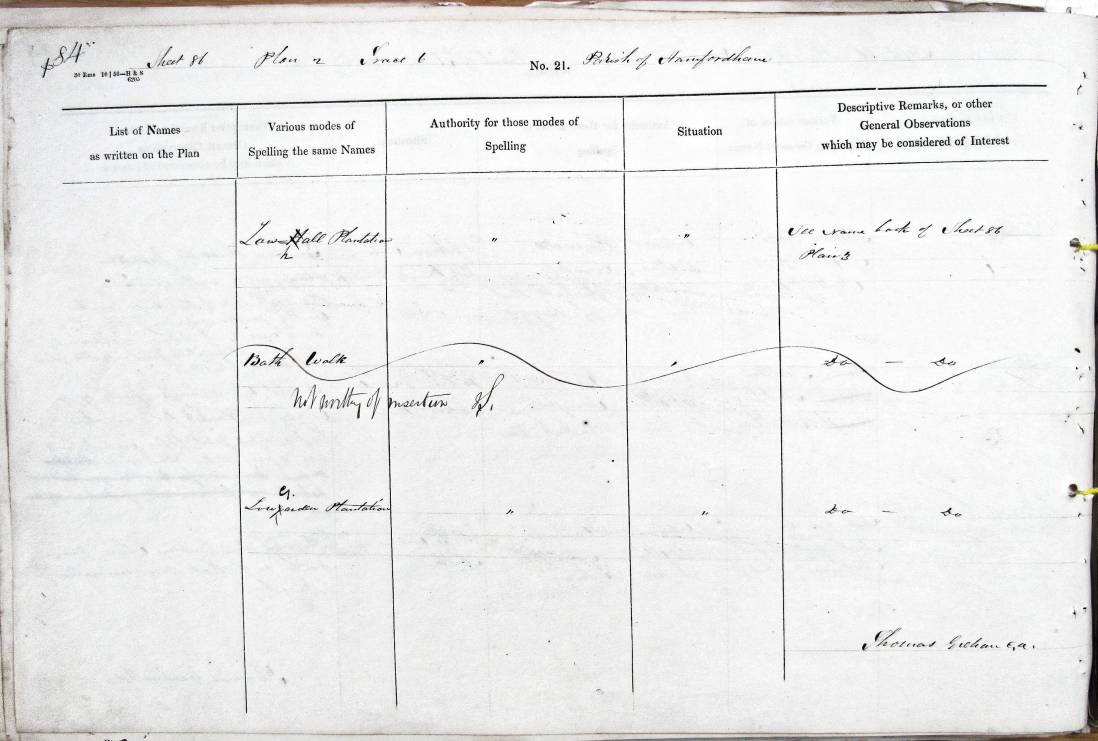 84
Sheet 86 Plan 2 Trace 6 No. 21. Parish of Stamfordham
List of Names
as written on the Plan
Various modes of
Spelling the same Names
Authority for those modes of
Spelling
Situation
Descriptive Remarks, or other
General Observations
which may be considered of Interest
Law Hall Plantation " " See Name book of Sheet 86
h
Plan 3
Bath Walk " " Do — Do
Not worthy of insertion
G
Low garden Plantation " " Do — Do
Thomas